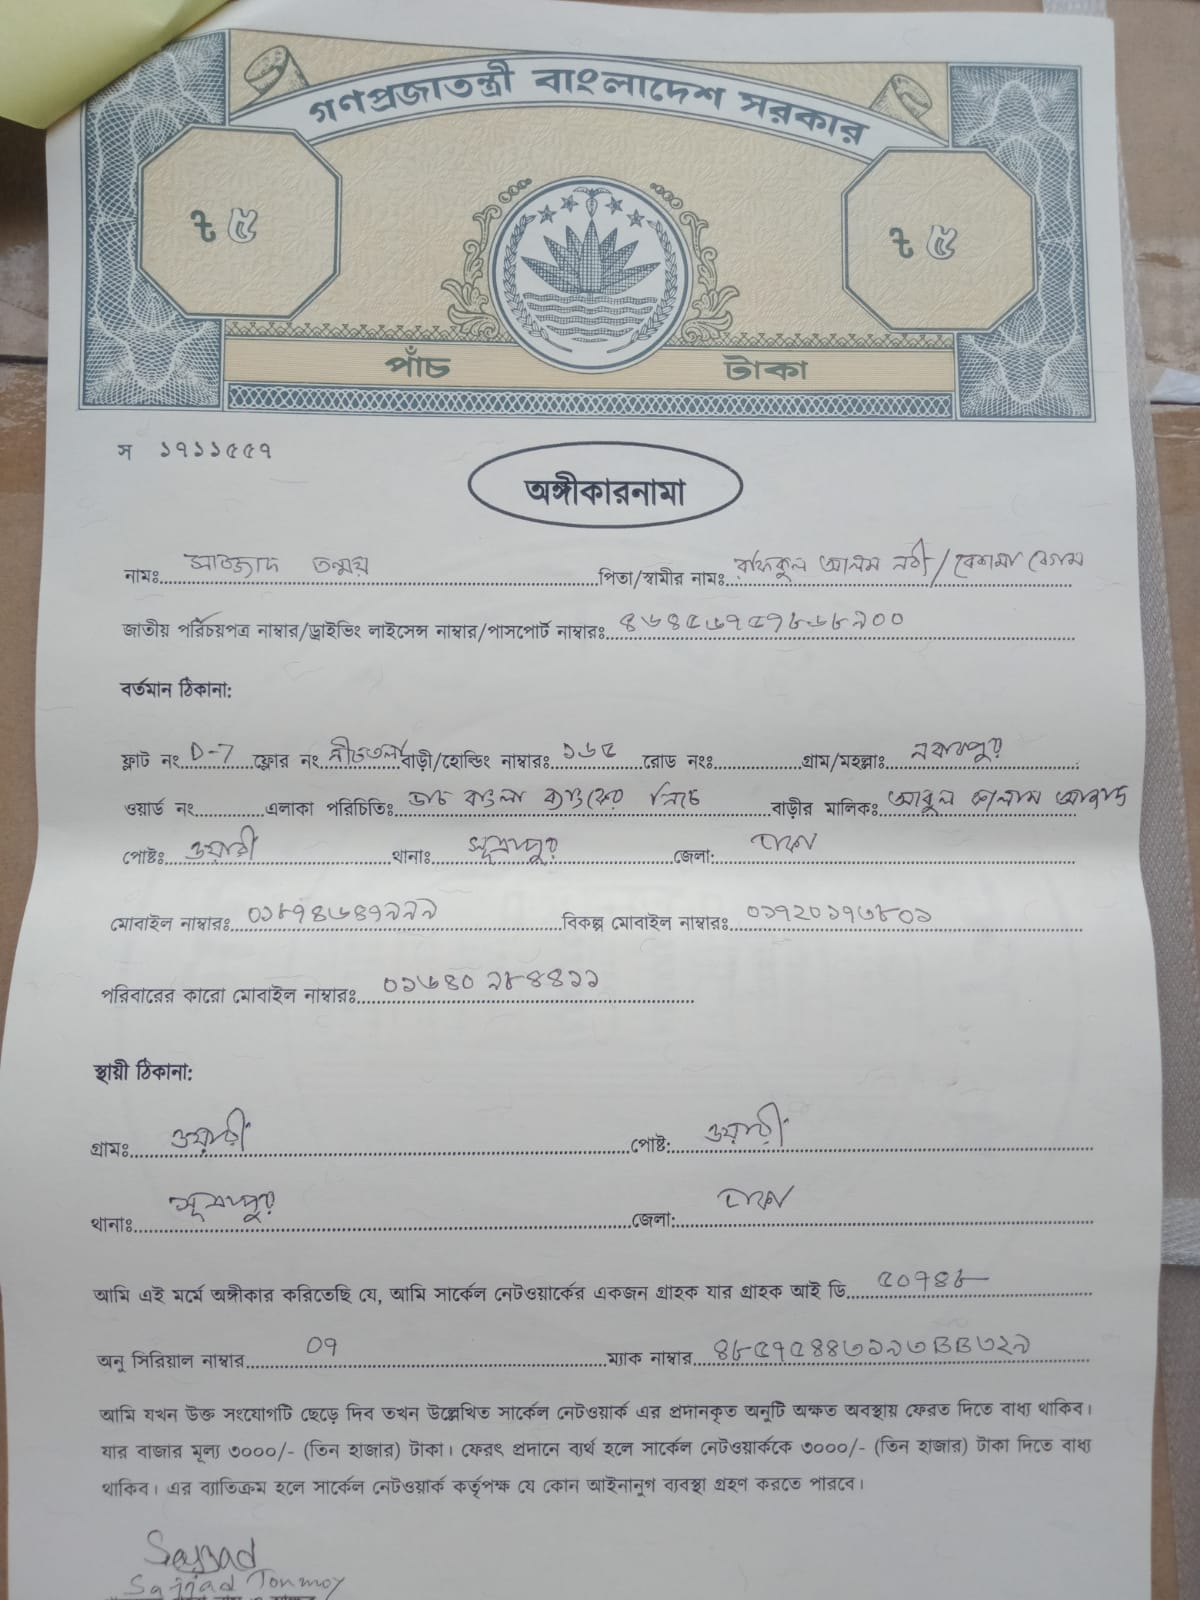 গণপ্রজাতন্ত্রী বাংলাদেশ সরকার
৳ ৫ ৳ ৫
পাঁচ টাকা
স ১৭১১৫৫৭
অঙ্গীকারনামা
নামঃ সাজ্জাদ তন্ময় পিতা/স্বামীর নামঃ রফিকুল আলম নবী/রেশমা বেগম
জাতীয় পরিচয়পত্র নাম্বার/ড্রাইভিং লাইসেন্স নাম্বার/পাসপোর্ট নাম্বারঃ ৪৬৪৫৬৭৫৭৮৬৮৯০০
বর্তমান ঠিকানা:
ফ্লাট নং D-7 ফ্লোর নং নীচতলা বাড়ী/হোল্ডিং নাম্বারঃ ১৬৫ রোড নংঃ গ্রাম/মহল্লাঃ নবাবপুর
ওয়ার্ড নং এলাকা পরিচিতিঃ ডাচ বাংলা ব্যাংকের নিচে বাড়ীর মালিকঃ আবুল কালাম আজাদ
পোষ্টঃ ওয়ারী থানাঃ সূত্রাপুর জেলা: ঢাকা
মোবাইল নাম্বারঃ ০১৮৭৪৬৪৭৯৯৯ বিকল্প মোবাইল নাম্বারঃ ০১৭২০১৭৬৮০১
পরিবারের কারো মোবাইল নাম্বারঃ ০১৬৪০ ৯৮৪৪১১
স্থায়ী ঠিকানা:
গ্রামঃ ওয়ারী পোষ্ট: ওয়ারী
থানাঃ সূত্রাপুর জেলা: ঢাকা
আমি এই মর্মে অঙ্গীকার করিতেছি যে, আমি সার্কেল নেটওয়ার্কের একজন গ্রাহক যার গ্রাহক আই ডি ৫০৭৪৮
অনু সিরিয়াল নাম্বার ০৭ ম্যাক নাম্বার
আমি যখন উক্ত সংযোগটি ছেড়ে দিব তখন উল্লেখিত সার্কেল নেটওয়ার্ক এর প্রদানকৃত অনুটি অক্ষত অবস্থায় ফেরত দিতে বাধ্য থাকিব।
যার বাজার মূল্য ৩০০০/- (তিন হাজার) টাকা। ফেরৎ প্রদানে ব্যর্থ হলে সার্কেল নেটওয়ার্ককে ৩০০০/- (তিন হাজার) টাকা দিতে বাধ্য
থাকিব। এর ব্যাতিক্রম হলে সার্কেল নেটওয়ার্ক কর্তৃপক্ষ যে কোন আইনানুগ ব্যবস্থা গ্রহণ করতে পারবে।
Sajjad
Sajjad Tonmoy